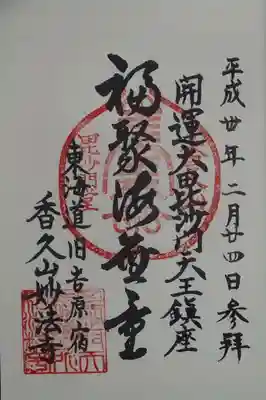 平成丗年 二月廿四日参拝
開運大毘沙門天王鎮座
福聚海無量
東海道旧吉原宿
香久山妙法寺
毘沙門天王